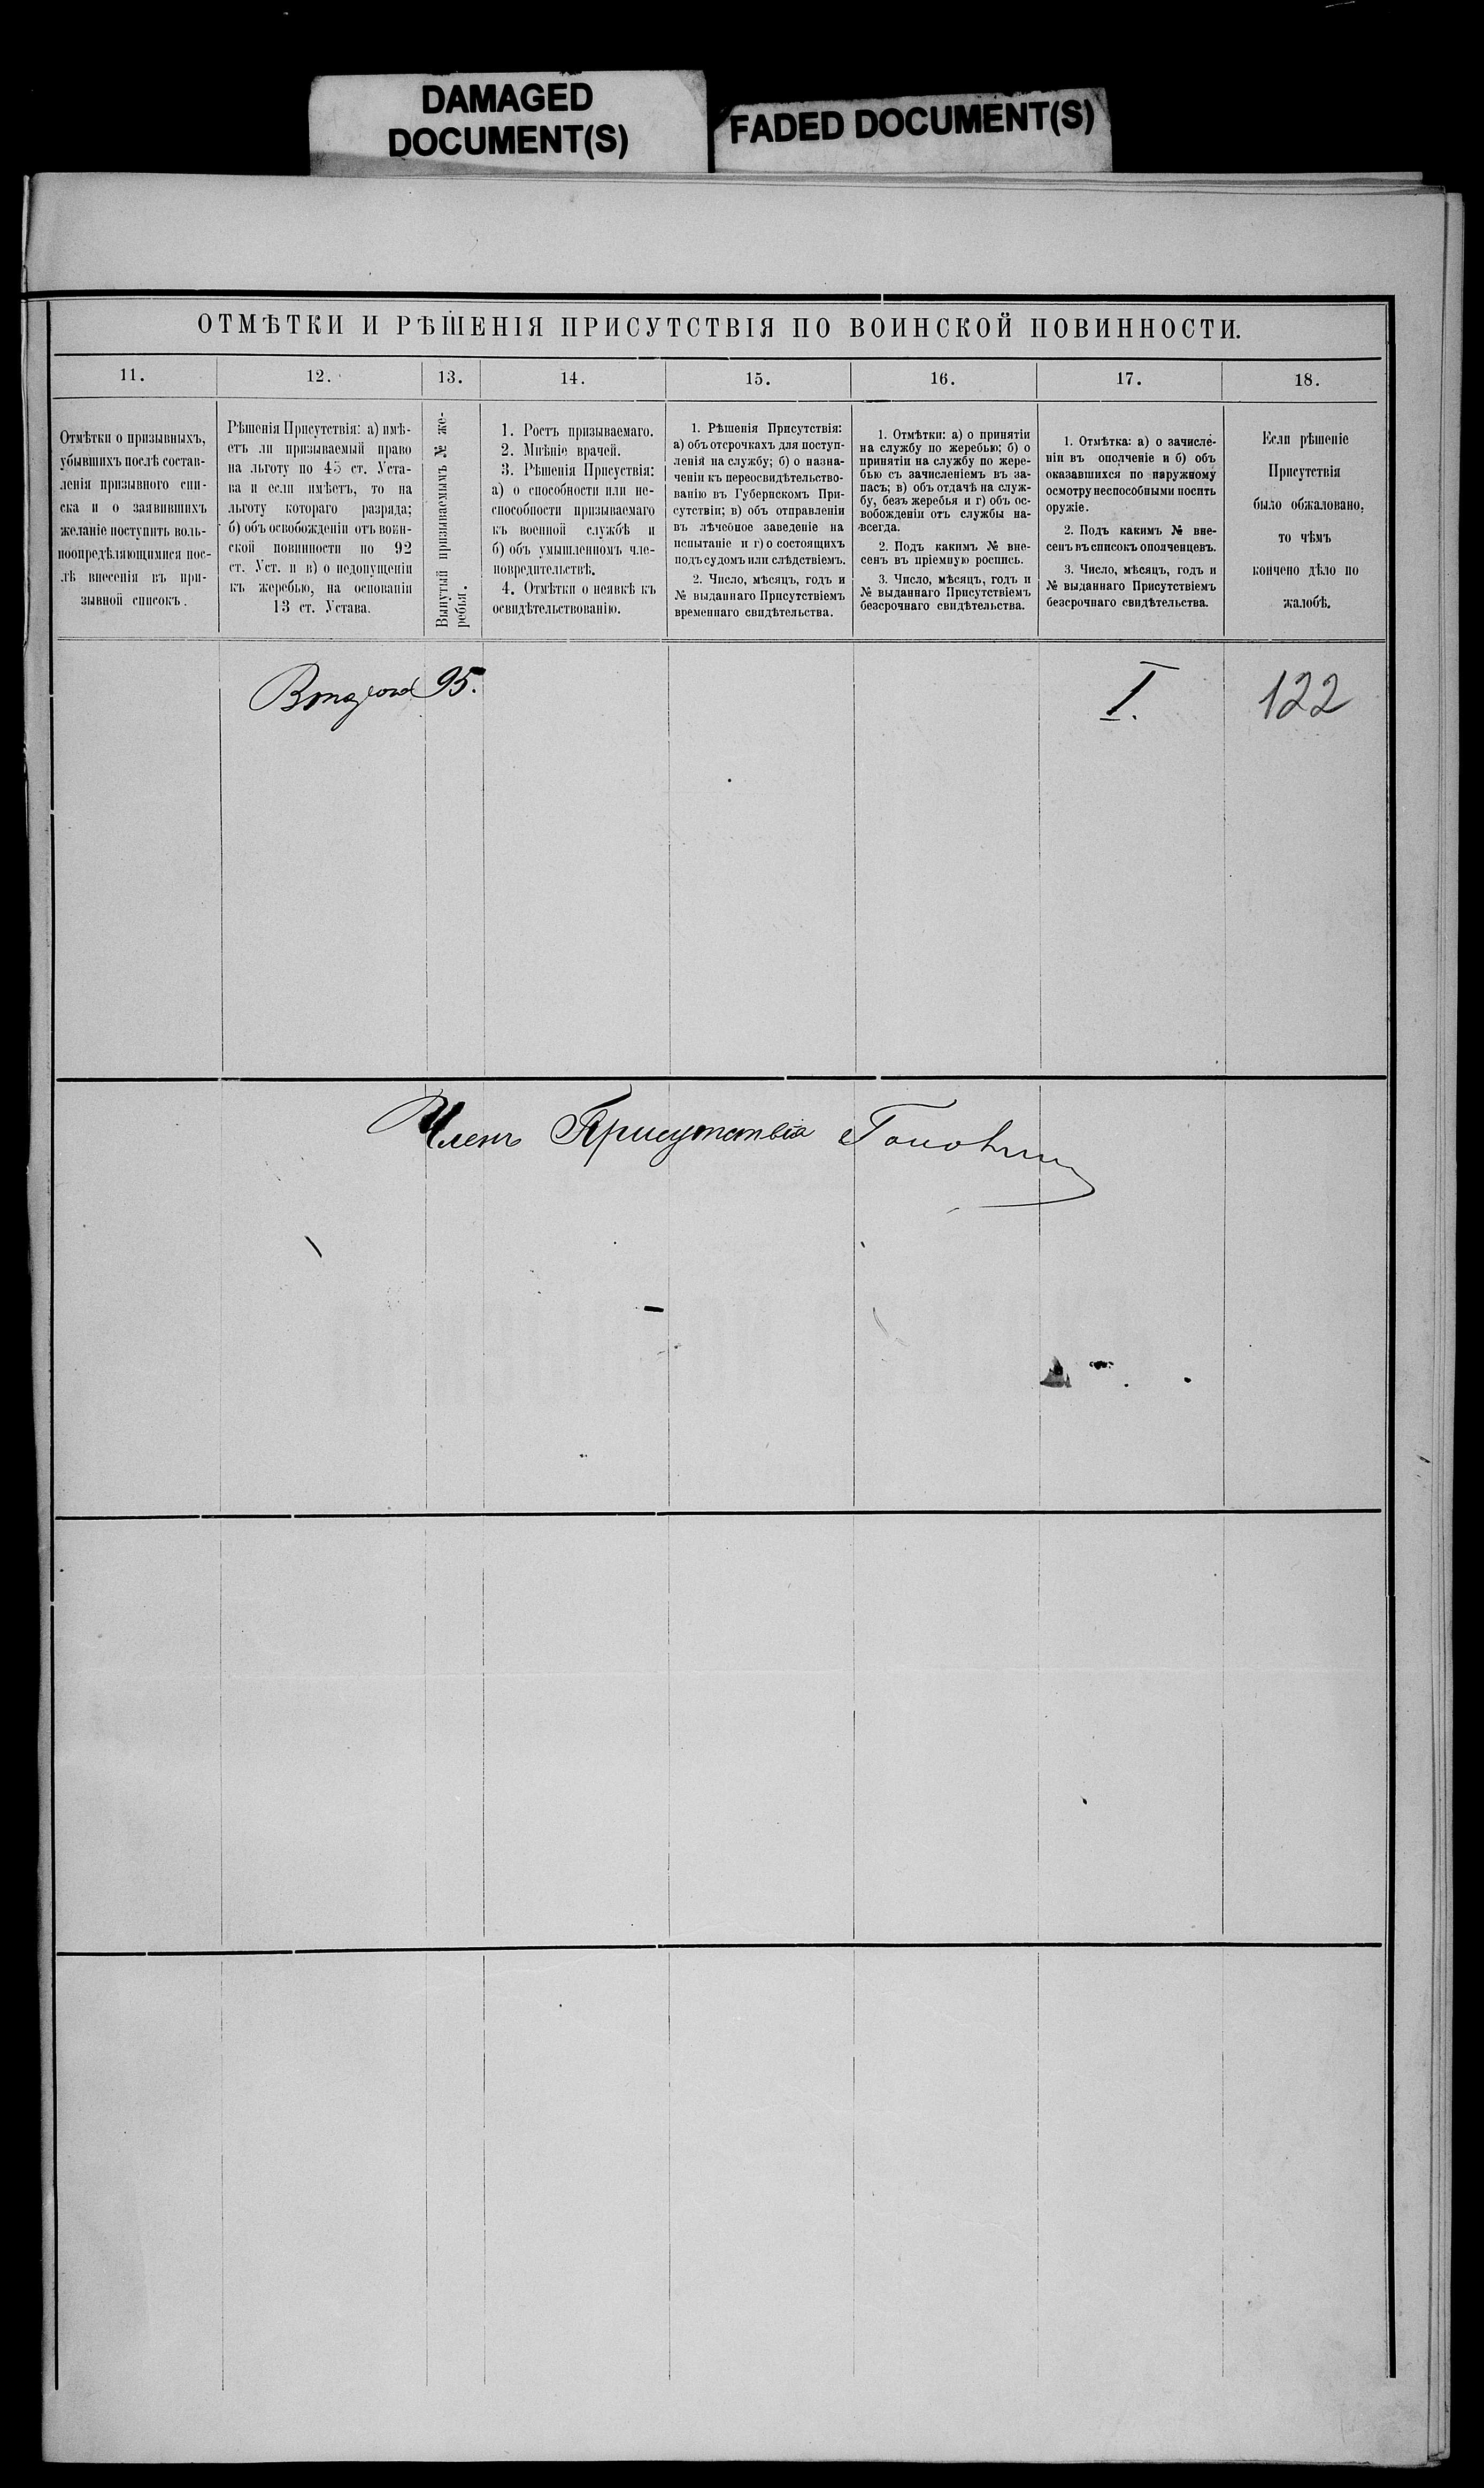 DAMAGED
DOCUMENT(S)
FADED DOCUMENT(S)
ОТМѢТКИ И РѢШЕНІЯ ПРИСУТСТВІЯ ПО ВОИНСКОЙ ПОВИННОСТИ.
11.
12.
13.
14.
15.
16.
17.
18.
Отмѣтки о призывныхъ,
убывшихъ послѣ состав-
ленія призывного спи-
ска и о заявившихъ
желаніе поступить воль-
ноопредѣляющимися пос-
лѣ внесенія въ при-
зывной списокъ.
Рѣшенія Присутствія: а) имѣ-
етъ ли призываемый право
на льготу по 45 ст. Уста-
ва и если имѣетъ, то на
льготу котораго разряда;
б) объ освобожденіи отъ воин-
ской повинности по 92
ст. Уст. и в) о недопущеніи
къ жеребью, на основаніи
13 ст. Устава.
Вынутый призываемымъ № же-
ребья.
1. Ростъ призываемаго.
2. Мнѣніе врачей.
3. Рѣшенія Присуствія:
а) о способности или не-
способности призываемаго
къ военной службѣ и
б) объ умышленномъ чле-
новредительствѣ.
4. Отмѣтки о неявкѣ къ
освидѣтельствованію.
1. Рѣшенія Присутствія:
а) объ отсрочкахъ для поступ-
ленія на службу; б) о назна-
ченіи къ переосвидѣтельство-
ванію въ Губернскомъ При-
сутствіи; в) объ отправленіи
въ лѣчебное заведеніе на
испытаніе и г) о состоящихъ
подъ судомъ или слѣдствіемъ.
2. Число, мѣсяцъ, годъ и
№ выданнаго Присутствіемъ
временнаго свидѣтельства.
1. Отмѣтки: а) о принятіи
на службу по жеребью; б) о
принятіи на службу по жере-
бью съ зачисленіемъ въ за-
пасъ; в) объ отдачѣ на служ-
бу, безъ жеребья и г) объ ос-
вобожденіи отъ службы на-
всегда.
2. Подъ какимъ № вне-
сенъ въ пріемную роспись.
3. Число, мѣсяцъ, годъ и
№ выданнаго Присутствіемъ
безсрочнаго свидѣтельства.
1. Отмѣтка: а) о зачисле-
ніи въ ополченіе и б) объ
оказавшихся по наружному
осмотру неспособными носить
оружіе.
2. Подъ какимъ № вне-
сенъ въ списокъ ополченцевъ.
3. Число, мѣсяцъ, годъ и
№ выданнаго Присутствіемъ
безсрочнаго свидѣтельства.
Если рѣшеніе
Присутствія
было обжаловано,
то чѣмъ
кончено дѣло по
жалобѣ.
95.
I.
122
Членъ Присутствія